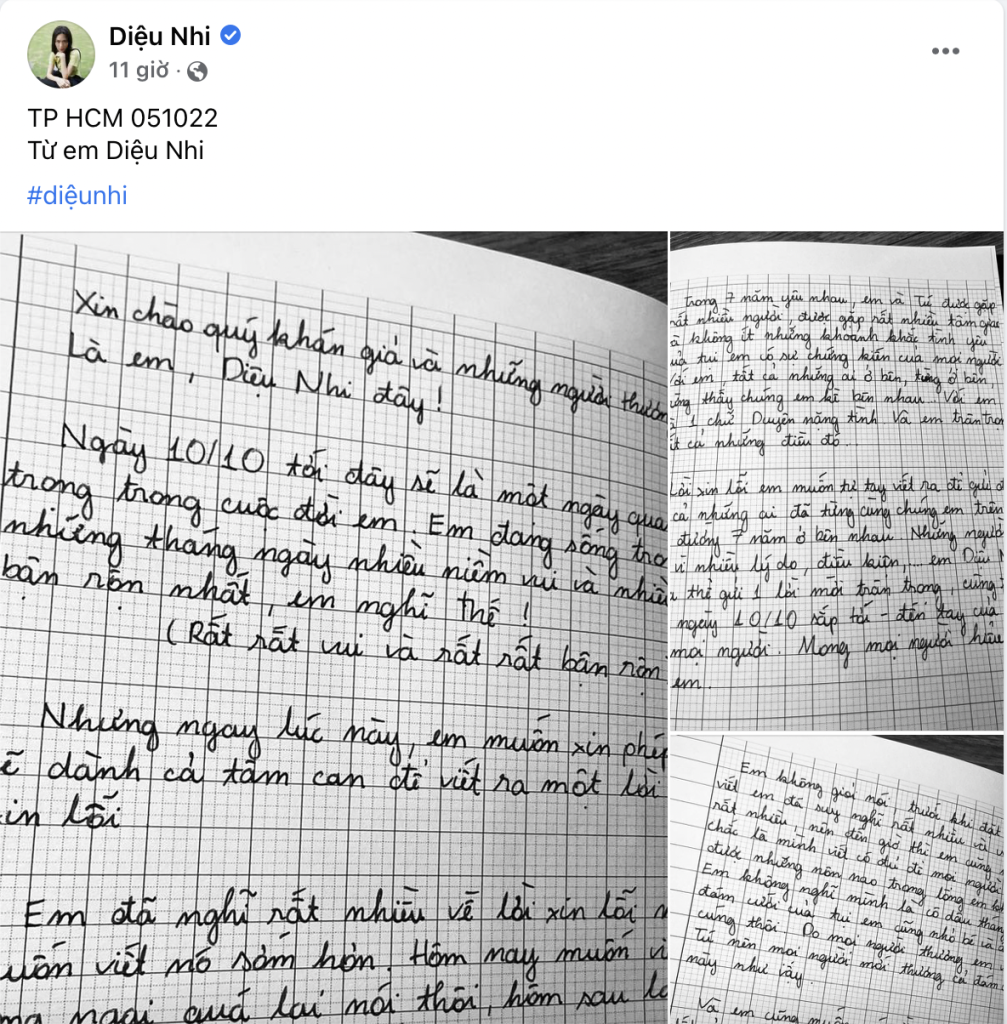 Diệu Nhi
11 giờ ·
TP HCM 051022
Từ em Diệu Nhi
#diệunhi
Xin chào quý khán giả và những người thươn
Là em, Diệu Nhi đây!
Ngày 10/10 tới đây sẽ là một ngày quan
trọng trong cuộc đời em. Em đang sống tro
những tháng ngày nhiều niềm vui và nhiều
bận rộn nhất, em nghĩ thế!
(Rất rất vui và rất rất bận rộn
Nhưng ngay lúc này, em muốn xin phép
ẽ dành cả tâm can để viết ra một lời
in lỗi
Em đã nghĩ rất nhiều về lời xin lỗi m
uốn viết nó sớm hơn. Hôm nay muốn vi
ngại quá lại nói thôi, hôm sau
Trong 7 năm yêu nhau, em và Tú được gặp
rất nhiều người, được gặp rất nhiều tâm
à không ít những khoảnh khắc tình yêu
ủa tụi em có sự chứng kiến của mọi người
Với em, tất cả những ai ở bên, từng ở bên,
ừng thấy chúng em kề bên nhau. Với em
1 chữ Duyên nặng tình. Và em trân trọ
ất cả những điều đó...
Lời xin lỗi em muốn tự tay viết ra để gửi
cả những ai đã từng cùng chúng em trên
đường 7 năm ở bên nhau. Những người
vì nhiều lý do, điều kiện,... em Diệu
thể gửi 1 lời mời trân trọng, cùng
ngày 10/10 sắp tới - đến tay của
mọi người. Mong mọi người hiểu
em.
Em không giỏi nói, trước khi đặt
viết em đã suy nghĩ rất nhiều và
rất nhiều, nên đến giờ thì em cũng
chắc là mình viết có đủ để mọi người
được những nôn nao trong lòng em
Em không nghĩ mình là cô dâu
đám cưới của tụi em cũng nhỏ bé
cúng thôi. Do mọi người thương em
Tú nên mọi người mới thương cả đám
này như vậy.
Và em cũng